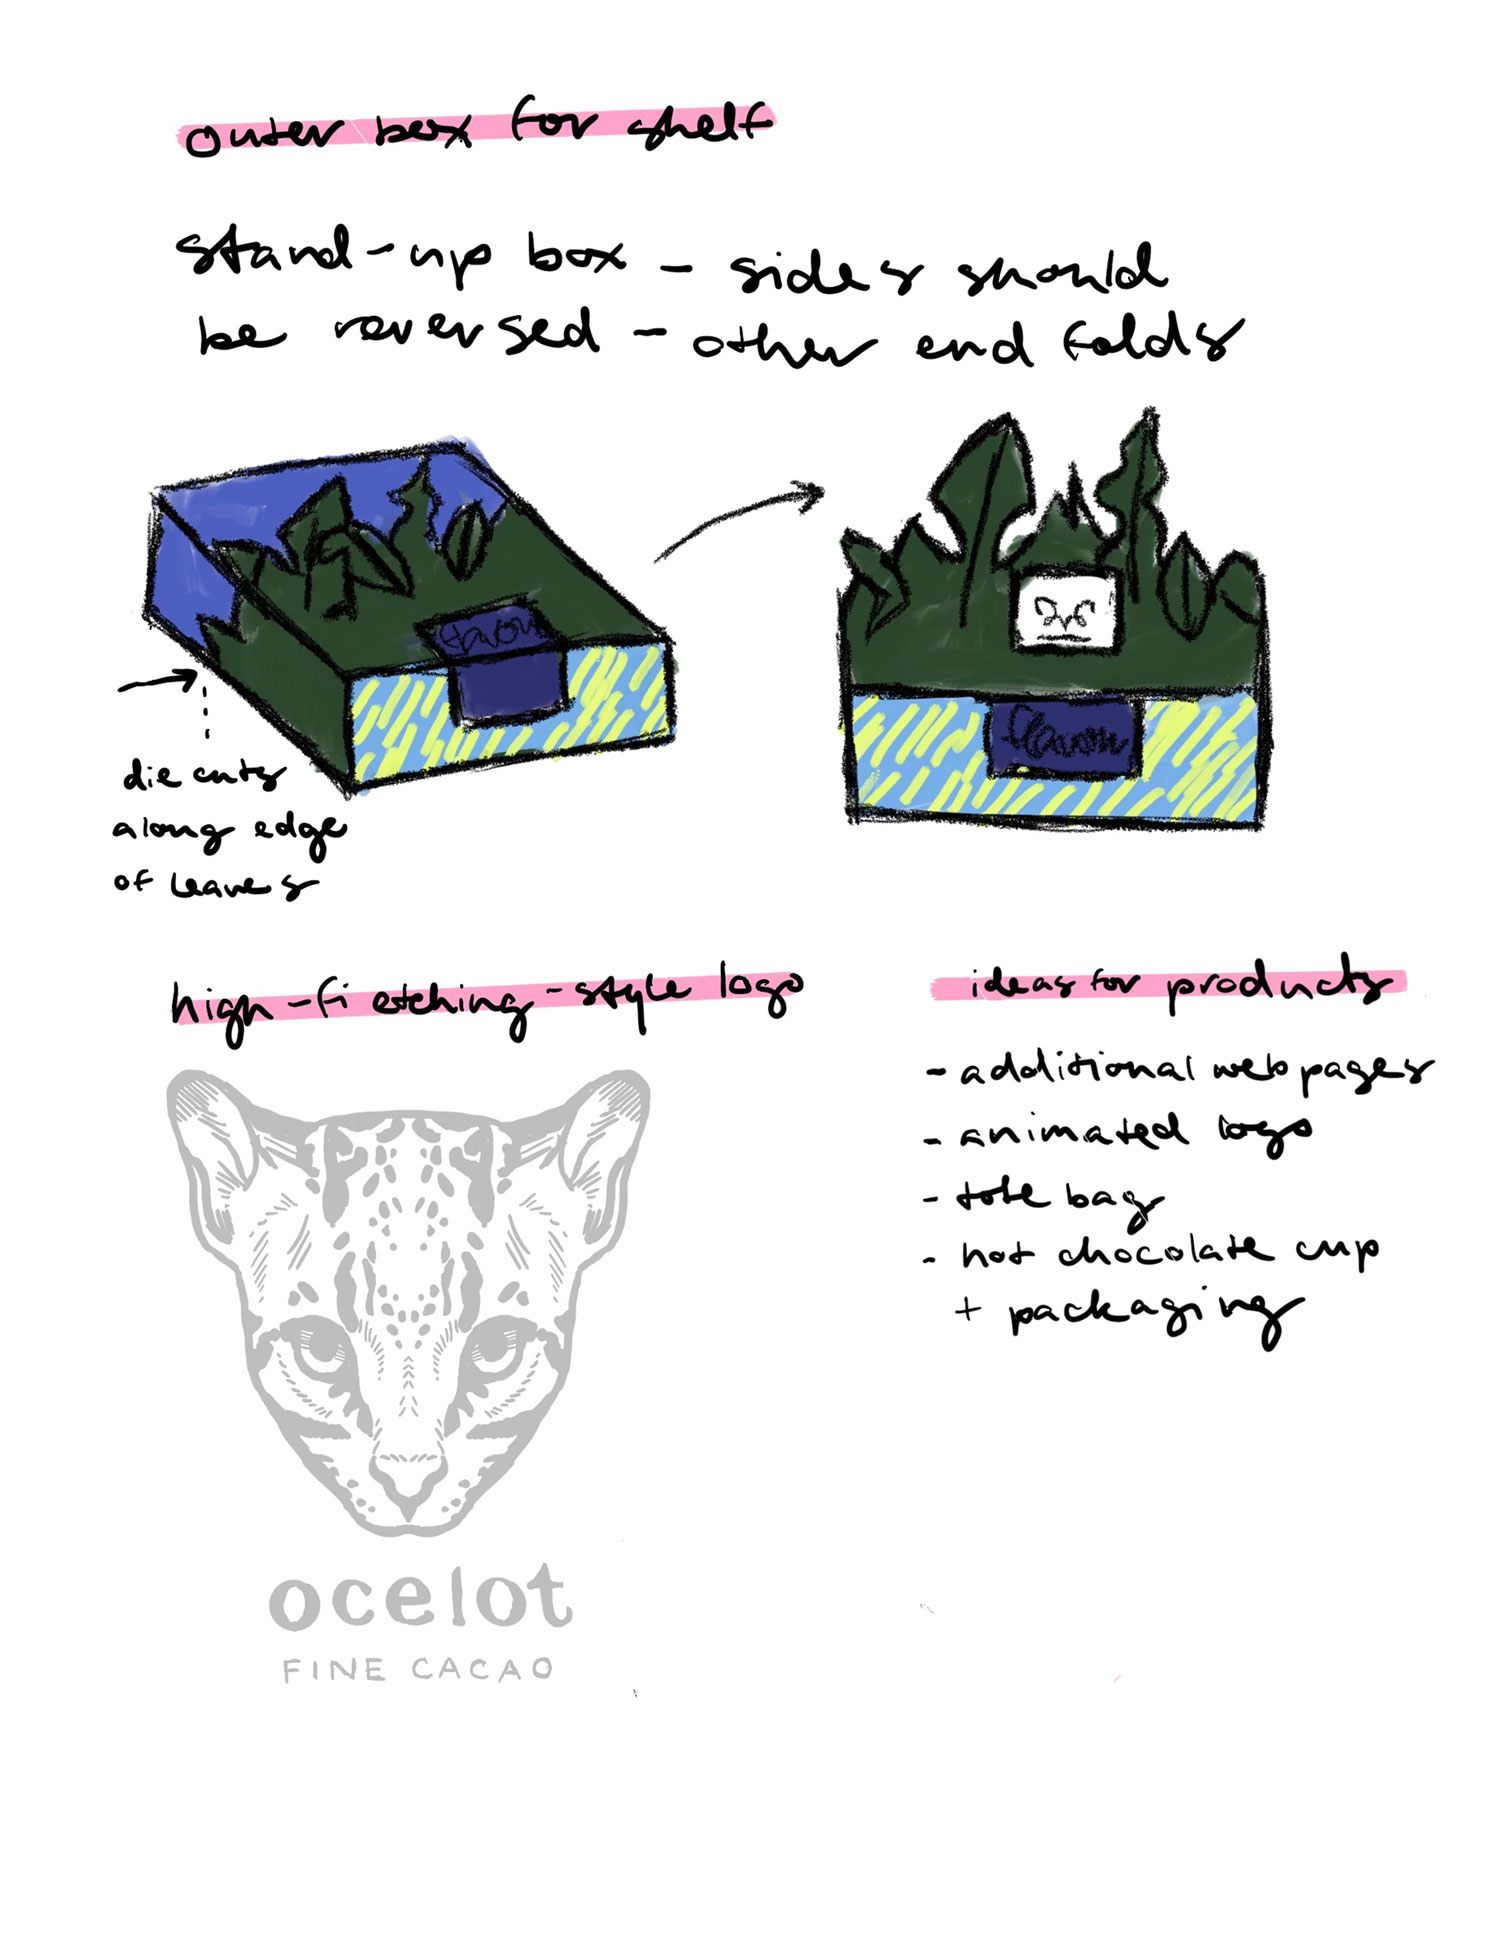 outer box for shelf
stand-up box - sides should
be reversed - other end folds
flavor
flavor
die cuts
along edge
of leaves
high-fi etching-style logo
ocelot
FINE CACAO
ideas for products
- additional webpages
- animated logo
- tote bag
- hot chocolate cup
+ packaging